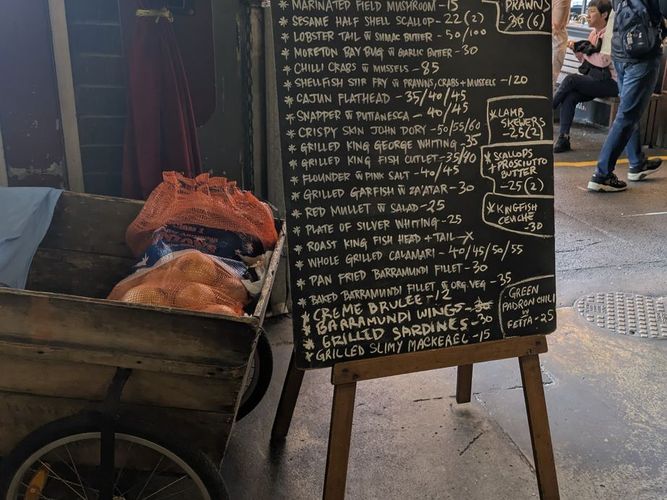 * MARINATED FIELD MUSHROOM - 15
* SESAME HALF SHELL SCALLOP - 22 (2)
* LOBSTER TAIL W SUMAC BUTTER - 50/100
* MORETON BAY BUG W GARLIC BUTTER - 30
* CHILLI CRABS W MUSSELS - 85
* SHELLFISH STIR FRY W PRAWNS, CRABS + MUSSELS - 120
* CAJUN FLATHEAD - 35/40/45
* SNAPPER W PUTTANESCA - 40/45
* CRISPY SKIN JOHN DORY - 50/55/60
* GRILLED KING GEORGE WHITING - 35
* GRILLED KING FISH CUTLET - 35/40
* FLOUNDER W PINK SALT - 40/45
* GRILLED GARFISH W ZA'ATAR - 30
* RED MULLET W SALAD - 25
* PLATE OF SILVER WHITING - 25
* ROAST KING FISH HEAD + TAIL - X
* WHOLE GRILLED CALAMARI - 40/45/50/55
* PAN FRIED BARRAMUNDI FILLET - 30
* BAKED BARRAMUNDI FILLET W ORG VEG - 35
* CREME BRULEE - 12
* BARRAMUNDI WINGS - 30
* GRILLED SARDINES - 30
* GRILLED SLIMY MACKEREL - 15
PRAWNS
(6)
* LAMB
SKEWERS
- 25 (2)
* SCALLOPS
+ PROSCIUTTO
BUTTER
- 25 (2)
* KINGFISH
CEVICHE
- 30
GREEN
PADRON CHILI
W
FETTA - 25